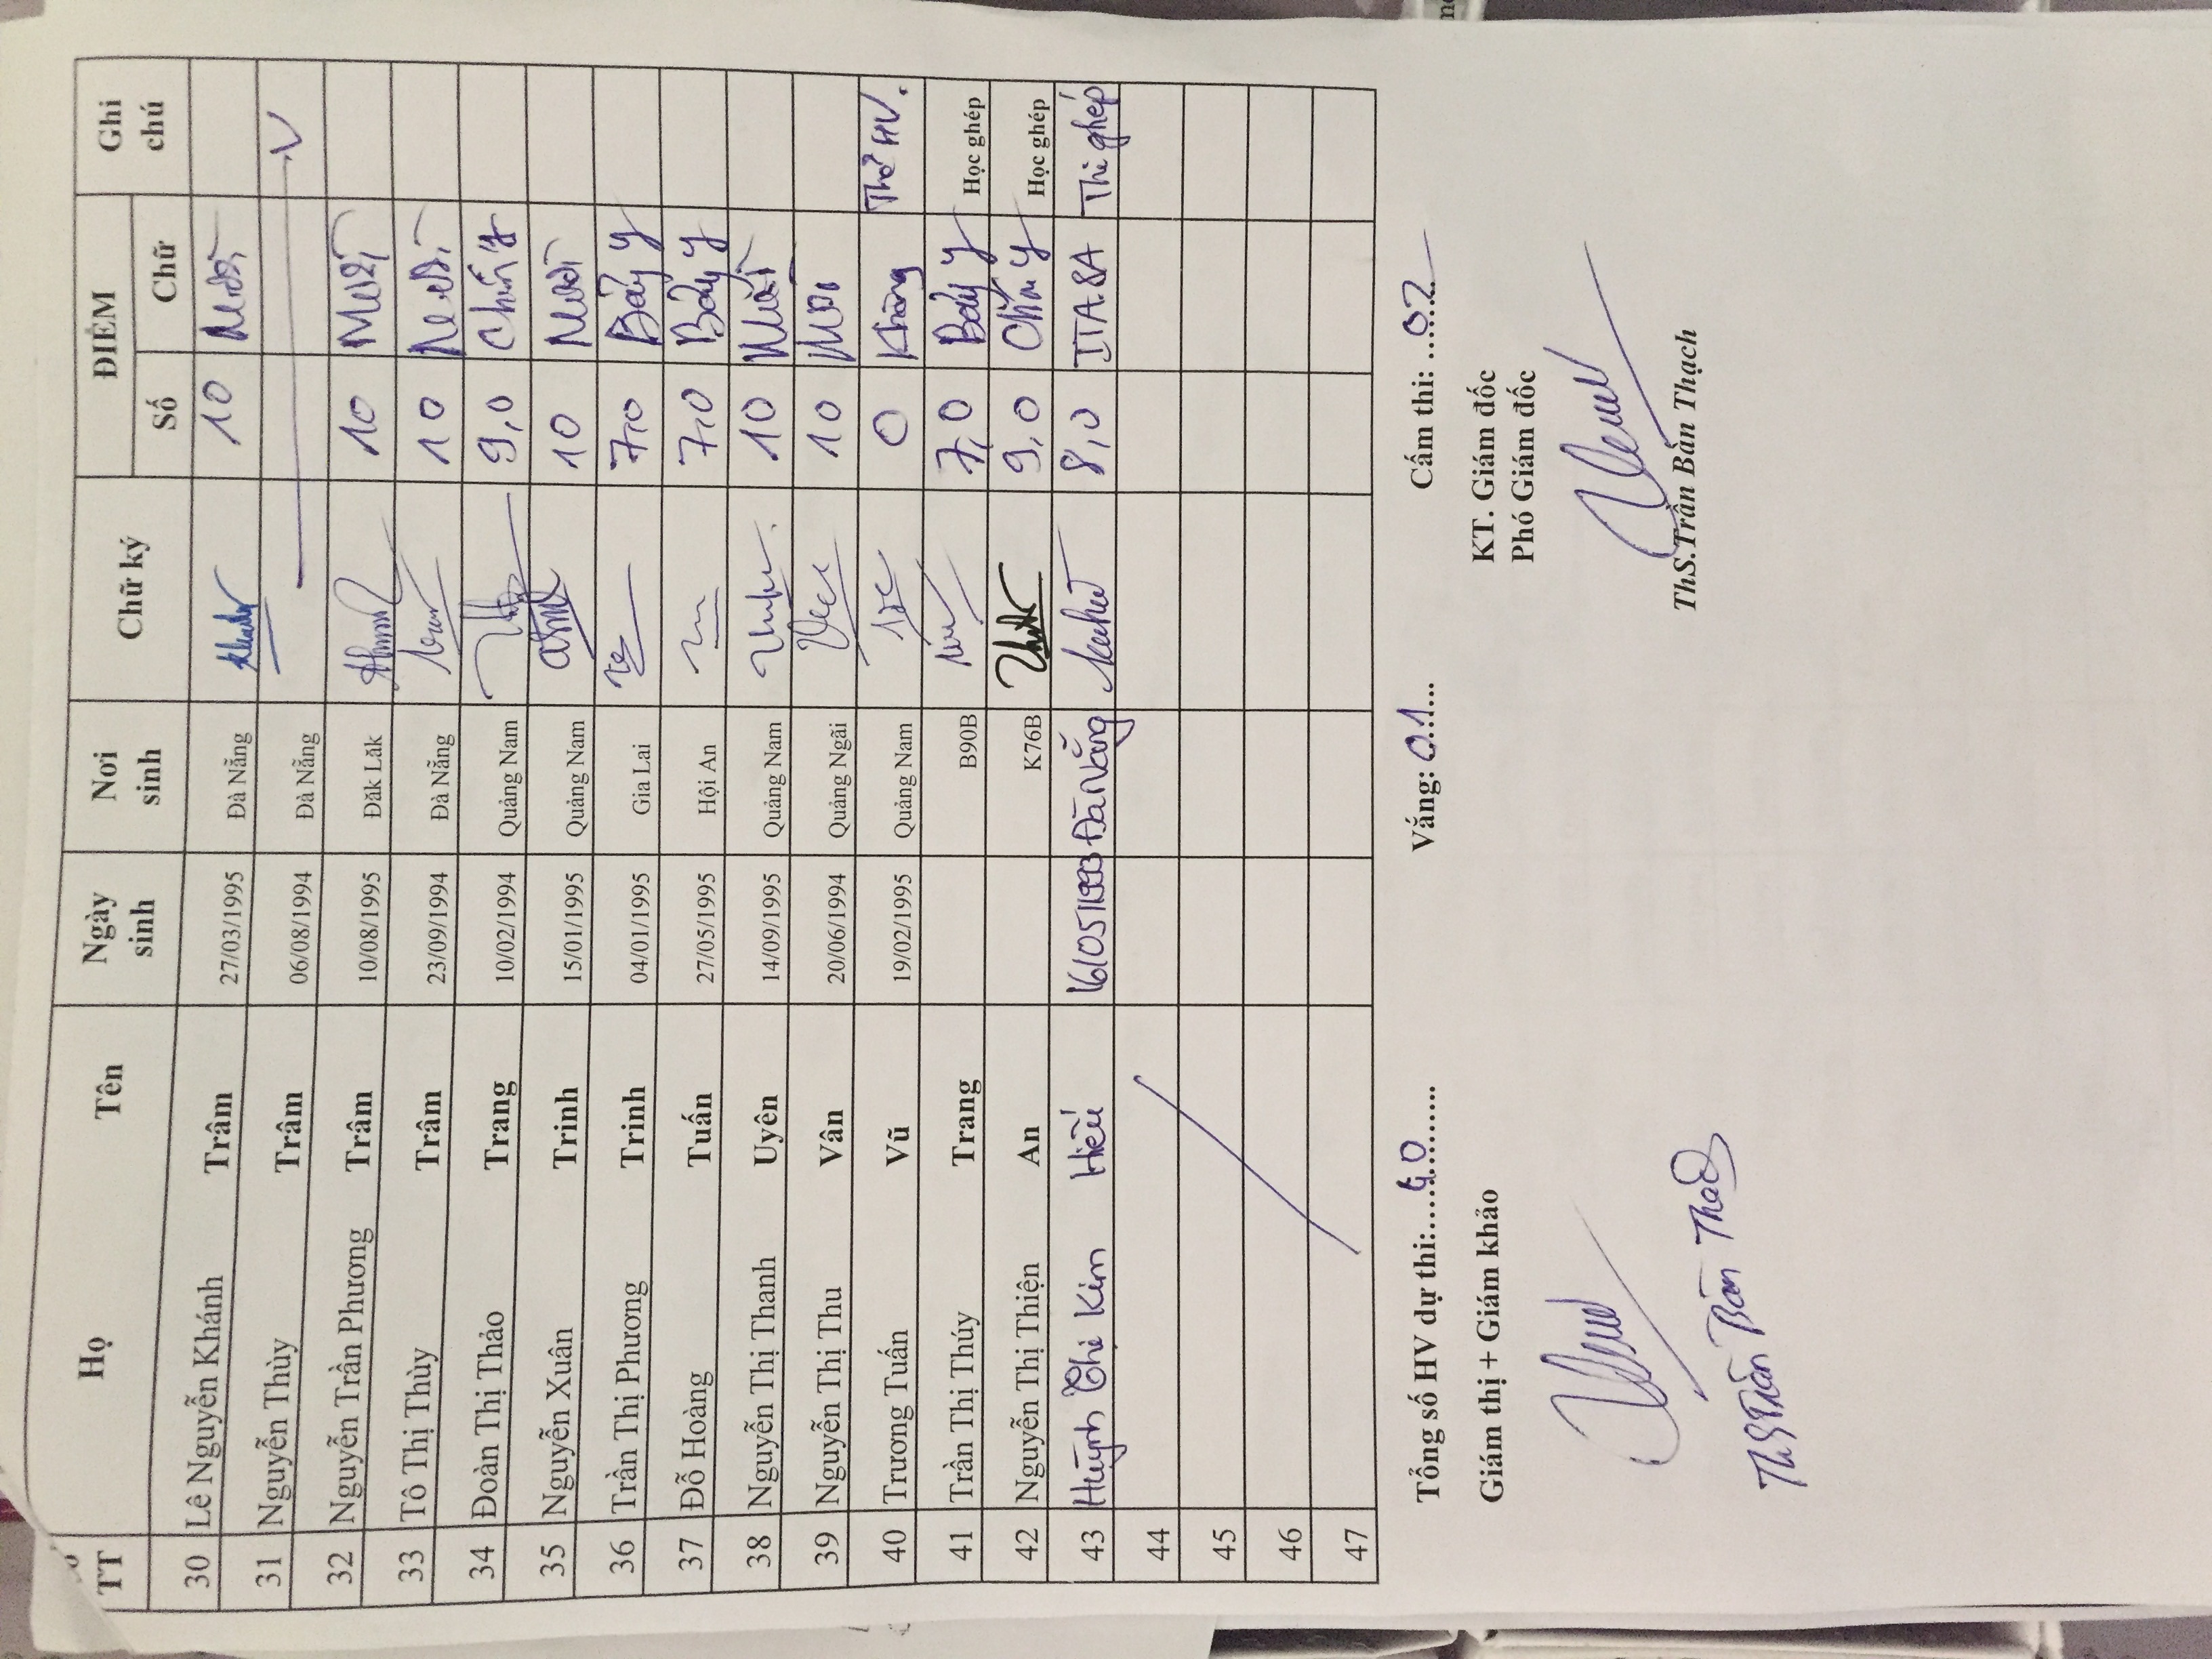 TT Họ Tên Ngày sinh Nơi sinh Chữ ký ĐIỂM Ghi chú
Số Chữ
30 Lê Nguyễn Khánh Trâm 27/03/1995 Đà Nẵng 10 Mười
31 Nguyễn Thùy Trâm 06/08/1994 Đà Nẵng V
32 Nguyễn Trần Phương Trâm 10/08/1995 Đăk Lăk 10 Mười
33 Tô Thị Thùy Trâm 23/09/1994 Đà Nẵng 10 Mười
34 Đoàn Thị Thảo Trang 10/02/1994 Quảng Nam 9,0 Chín
35 Nguyễn Xuân Trinh 15/01/1995 Quảng Nam 10 Mười
36 Trần Thị Phương Trinh 04/01/1995 Gia Lai 7,0 Bảy
37 Đỗ Hoàng Tuấn 27/05/1995 Hội An 7,0 Bảy
38 Nguyễn Thị Thanh Uyên 14/09/1995 Quảng Nam 10 Mười
39 Nguyễn Thị Thu Vân 20/06/1994 Quảng Ngãi 10 Mười
40 Trương Tuấn Vũ 19/02/1995 Quảng Nam 0 Không
41 Trần Thị Thúy Trang B90B 7,0 Bảy Học ghép
42 Nguyễn Thị Thiện An K76B 9,0 Chín Học ghép
43 Huỳnh Thị Kim Hiếu 16/05/1993 Đà Nẵng 8,0 Thi ghép
44
45
46
47
Tổng số HV dự thi: 40 Vắng: 01 Cấm thi: 02
Giám thị + Giám khảo KT. Giám đốc
Phó Giám đốc
ThS Trần Bản Thạch ThS.Trần Bản Thạch